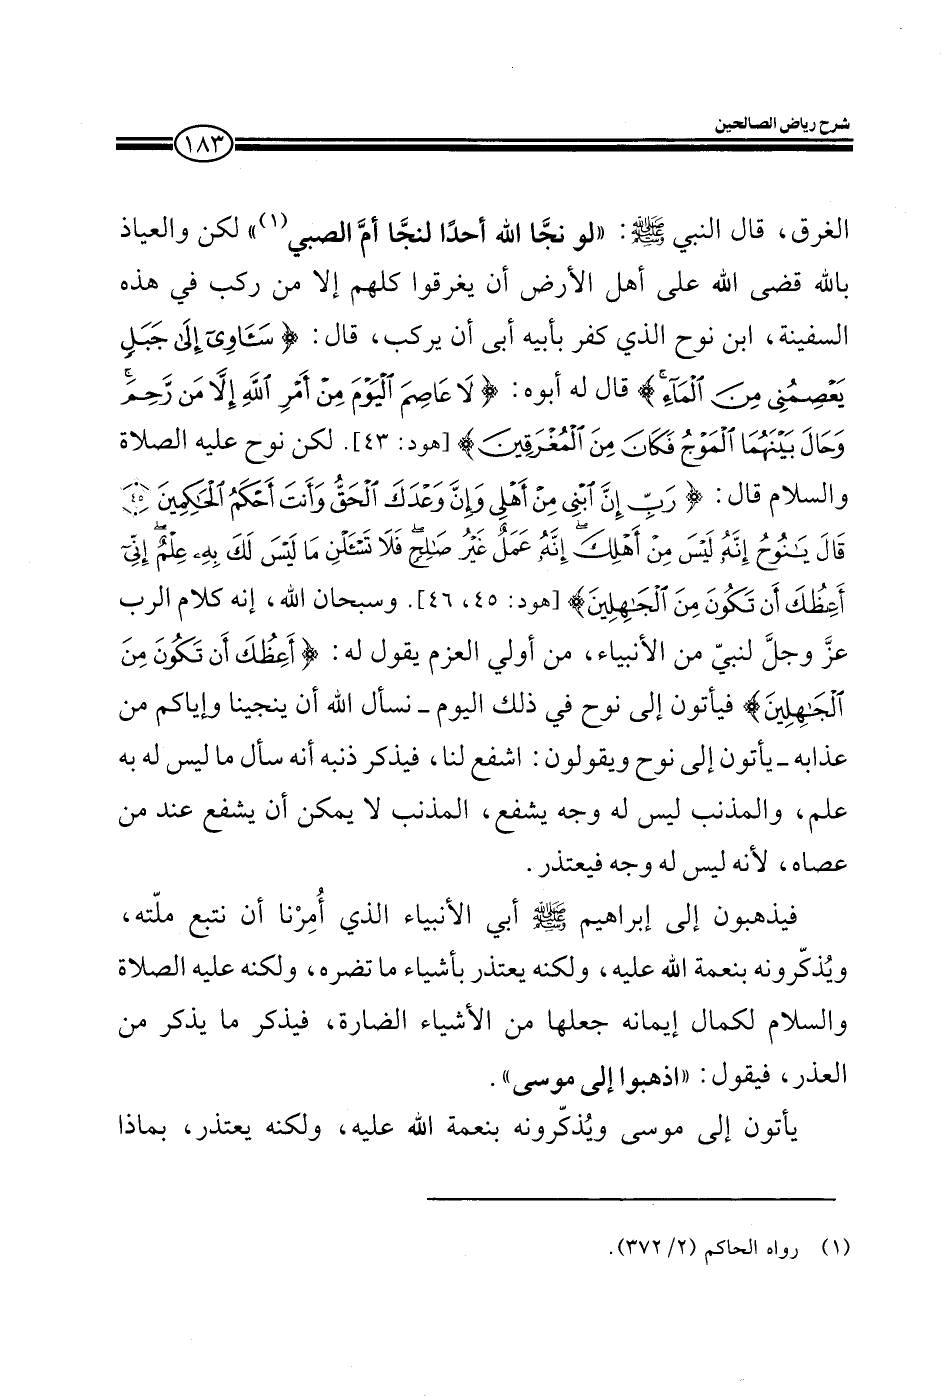 شرح رياض الصالحين
١٨٣
الغرق، قال النبي ﷺ: «لو نجَّا الله أحدًا لنجَّا أمَّ الصبي(١)» لكن والعياذ
بالله قضى الله على أهل الأرض أن يغرقوا كلهم إلا من ركب في هذه
السفينة، ابن نوح الذي كفر بأبيه أبى أن يركب، قال: ﴿سَـَٔاوِىٓ إِلَىٰ جَبَلٍ
يَعْصِمُنِى مِنَ ٱلْمَآءِ ۚ﴾ قال له أبوه: ﴿لَا عَاصِمَ ٱلْيَوْمَ مِنْ أَمْرِ ٱللَّهِ إِلَّا مَن رَّحِمَ ۚ
وَحَالَ بَيْنَهُمَا ٱلْمَوْجُ فَكَانَ مِنَ ٱلْمُغْرَقِينَ﴾ [هود: ٤٣]. لكن نوح عليه الصلاة
والسلام قال: ﴿رَبِّ إِنَّ ٱبْنِى مِنْ أَهْلِى وَإِنَّ وَعْدَكَ ٱلْحَقُّ وَأَنتَ أَحْكَمُ ٱلْحَـٰكِمِينَ ۝٤٥
قَالَ يَـٰنُوحُ إِنَّهُۥ لَيْسَ مِنْ أَهْلِكَ ۖ إِنَّهُۥ عَمَلٌ غَيْرُ صَـٰلِحٍ ۖ فَلَا تَسْـَٔلْنِ مَا لَيْسَ لَكَ بِهِۦ عِلْمٌ ۖ إِنِّىٓ
أَعِظُكَ أَن تَكُونَ مِنَ ٱلْجَـٰهِلِينَ﴾ [هود: ٤٥، ٤٦]. وسبحان الله، إنه كلام الرب
عزَّ وجلَّ لنبيّ من الأنبياء، من أولي العزم يقول له: ﴿أَعِظُكَ أَن تَكُونَ مِنَ
ٱلْجَـٰهِلِينَ﴾ فيأتون إلى نوح في ذلك اليوم ـ نسأل الله أن ينجينا وإياكم من
عذابه ـ يأتون إلى نوح ويقولون: اشفع لنا، فيذكر ذنبه أنه سأل ما ليس له به
علم، والمذنب ليس له وجه يشفع، المذنب لا يمكن أن يشفع عند من
عصاه، لأنه ليس له وجه فيعتذر.
فيذهبون إلى إبراهيم ﷺ أبي الأنبياء الذي أُمِرْنا أن نتبع ملّته،
ويُذكّرونه بنعمة الله عليه، ولكنه يعتذر بأشياء ما تضره، ولكنه عليه الصلاة
والسلام لكمال إيمانه جعلها من الأشياء الضارة، فيذكر ما يذكر من
العذر، فيقول: «اذهبوا إلى موسى».
يأتون إلى موسى ويُذكّرونه بنعمة الله عليه، ولكنه يعتذر، بماذا
(١) رواه الحاكم (٢/ ٣٧٢).